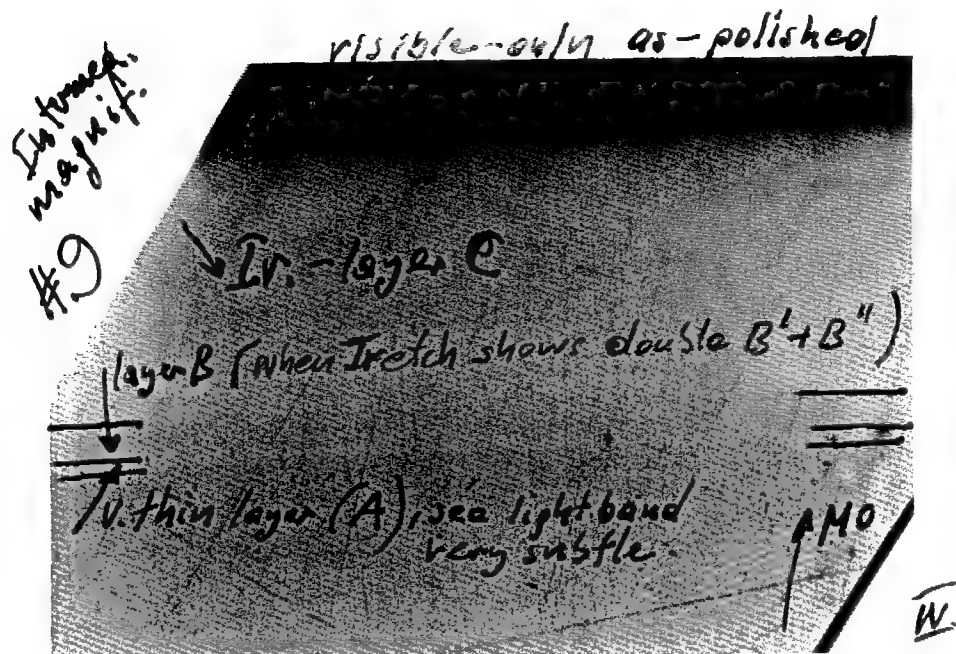 visible-only as-polished
magnif.
#9
Ir.-layer C
layer B (when I retch shows double B'+B")
V. thin layer (A), see light band
very subtle.
MO
W.